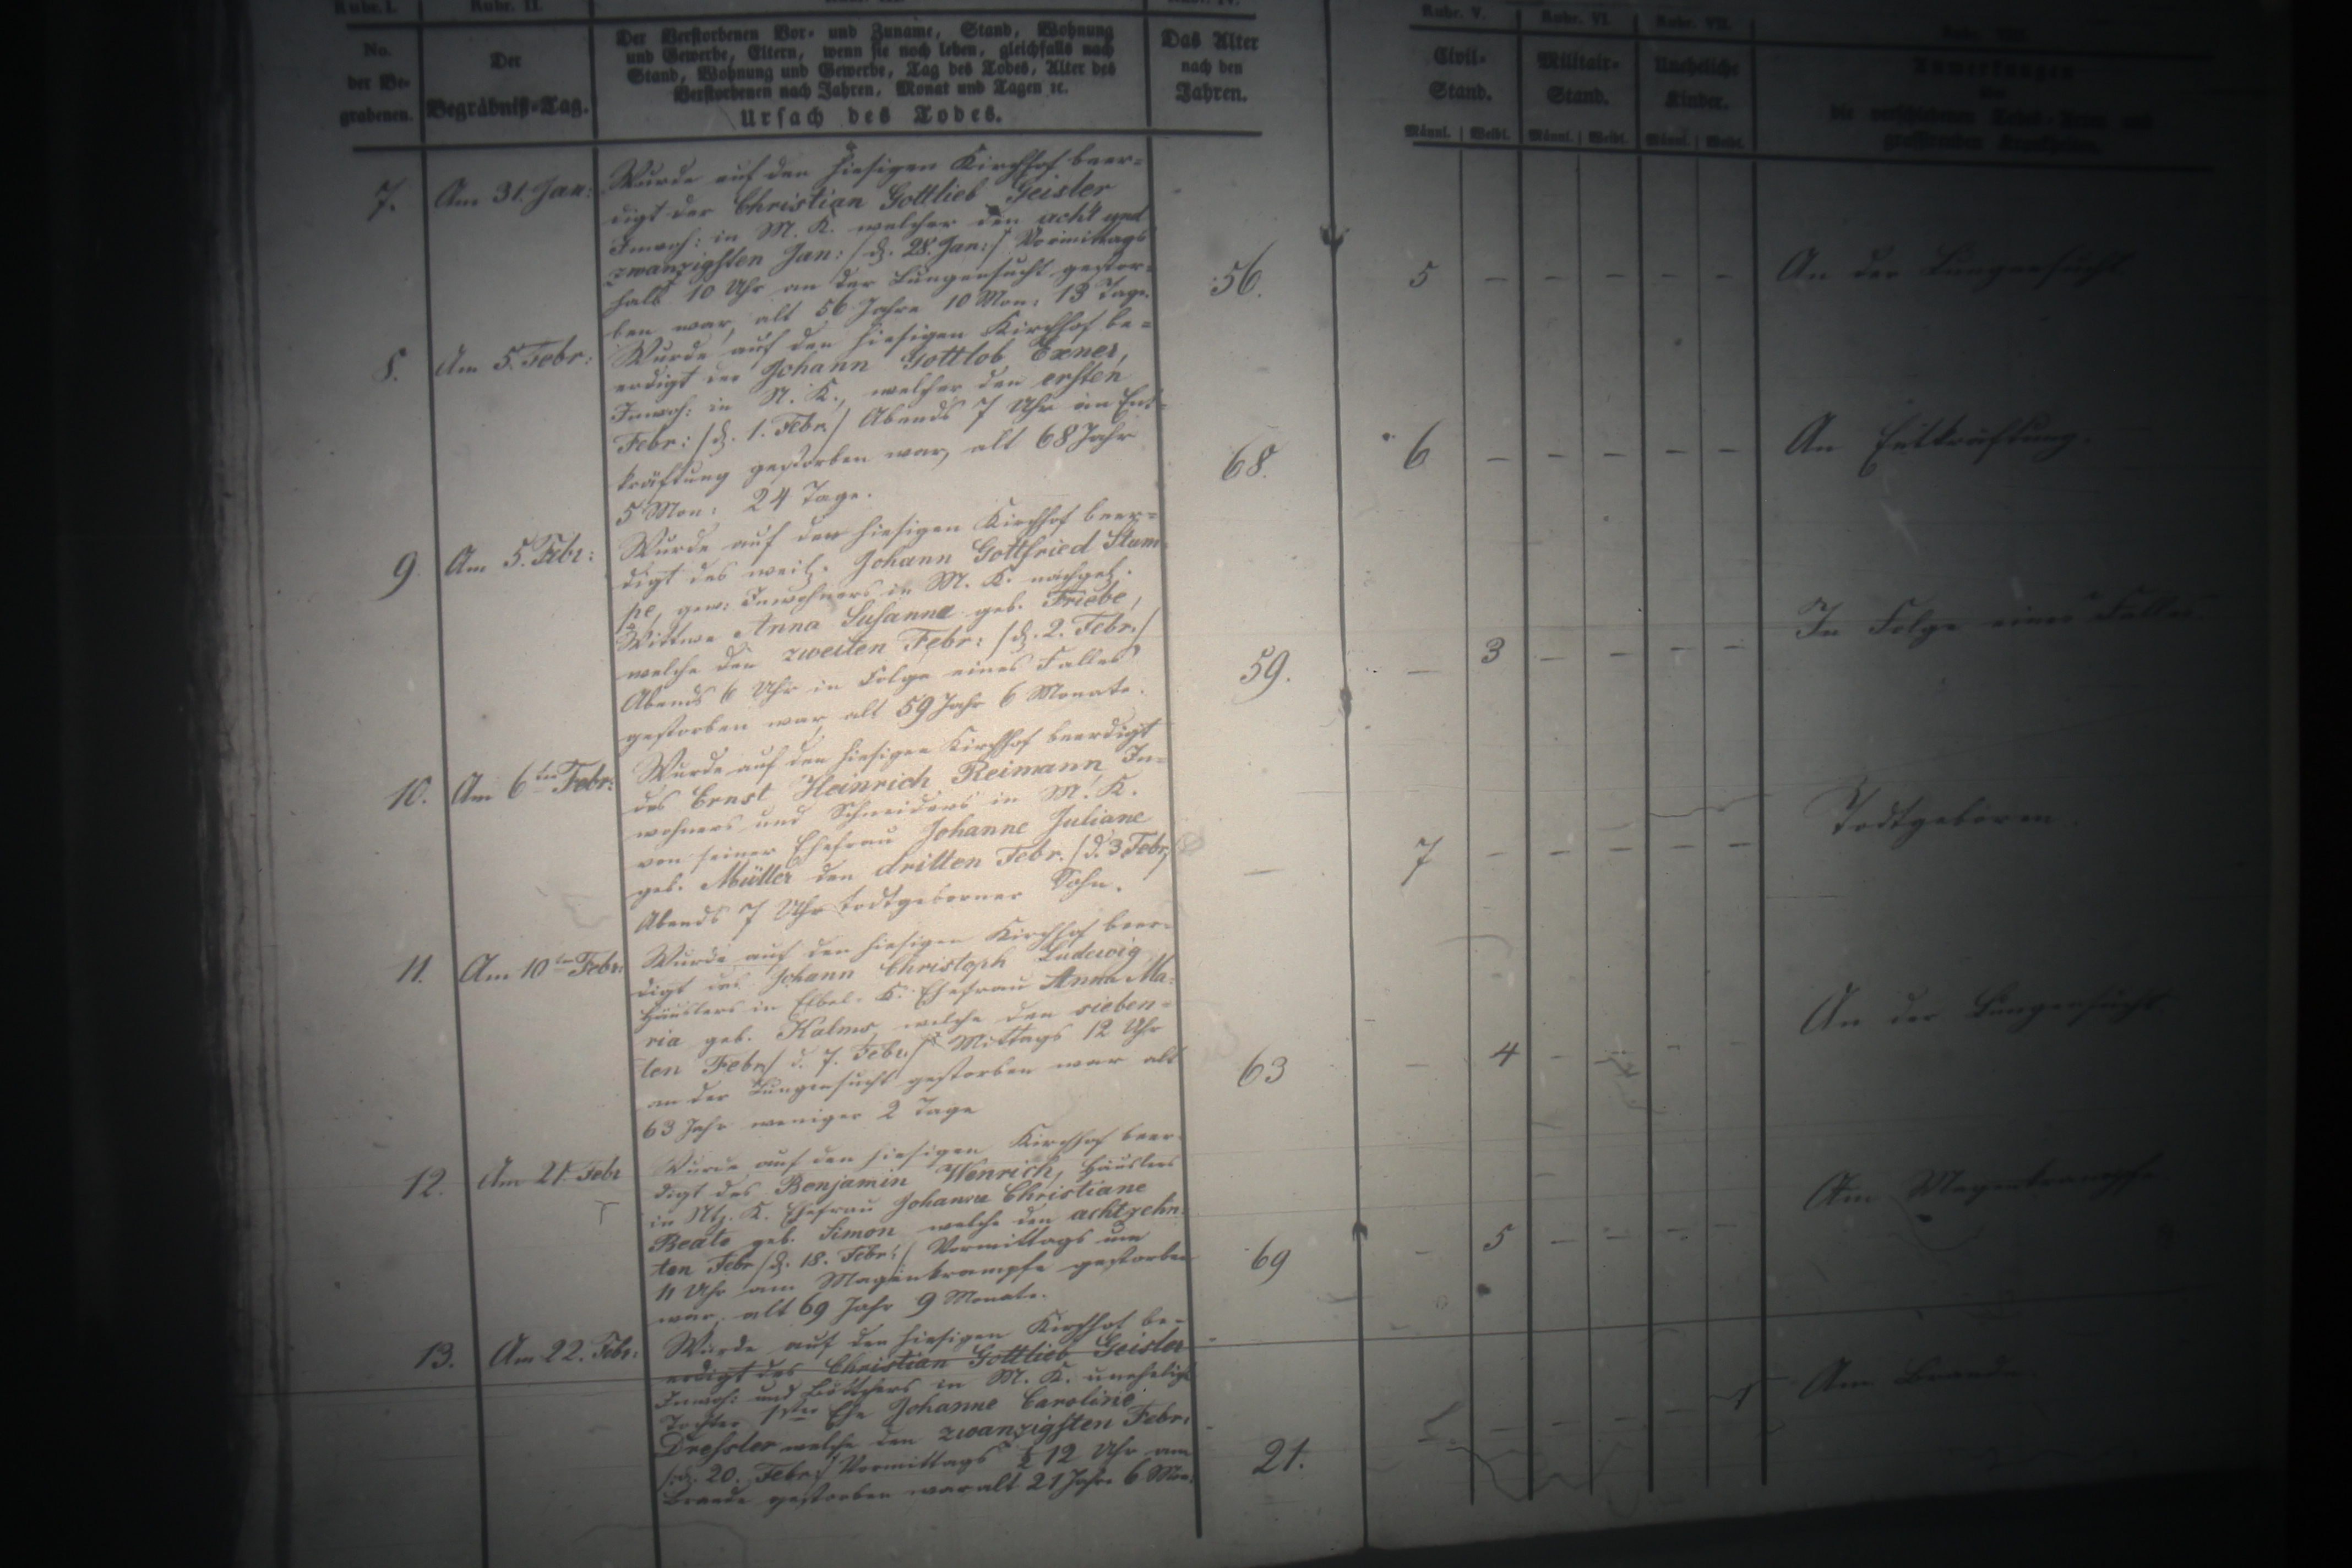 Rubr. I.
Rubr. II.
Rubr. V.
Rubr. VI.
Rubr. VII.
No.
der Be-
grabenen.
Der
Begräbniß-Tag.
Der Verstorbenen Vor- und Zuname, Stand, Wohnung
und Gewerbe, Eltern, wenn sie noch leben, gleichfalls nach
Stand, Wohnung und Gewerbe, Tag des Todes, Alter des
Verstorbenen nach Jahren, Monat und Tagen ꝛc.
Ursach des Todes.
Das Alter
nach den
Jahren.
Civil-
Stand.
Männl. | Weibl.
Militair-
Stand.
Männl. | Weibl.
Uneheliche
Kinder.
Männl. | Weibl.
Anmerkungen
über
die verschiedenen Todes-Arten und
grassirenden Krankheiten.
7. Am 31. Jan:
Wurde auf den hiesigen Kirchhof beer=
digt der Christian Gottlieb Geisler
Inwoh: in M. K. welcher den acht und
zwanzigsten Jan: /d. 28. Jan:/ Vormittags
halb 10 Uhr an der Lungensucht gestor=
ben war, alt 56 Jahre 10 Mon: 13 Tage.
56. 5 – – – – –
An der Lungensucht
8. Am 5. Febr:
Wurde auf den hiesigen Kirchhof be=
erdigt der Johann Gottlob Exner,
Inwoh: in N. K., welcher den ersten
Febr: /d. 1. Febr/ Abends 7 Uhr an Ent=
kräftung gestorben war, alt 68 Jahr
5 Mon: 24 Tage.
68. 6 – – – – –
An Entkräftung.
9 Am 5. Febr:
Wurde auf den hiesigen Kirchhof beer=
digt des weil. Johann Gottfried Stum
pe, gew: Inwohners in M. K. nachgel.
Wittwe Anna Susanna geb. Friebe,
welche den zweiten Febr: /d. 2. Febr./
Abends 6 Uhr in Folge eines Falles
gestorben war, alt 59 Jahr 6 Monate.
59. – 3 – – – –
In Folge eines Falles
10. Am 6ten Febr:
Wurde auf den hiesigen Kirchhof beerdigt
des Ernst Heinrich Reimann, In=
wohners und Schneiders in M. K.
von seiner Ehefrau Johanne Juliane
geb. Müller den dritten Febr. /d. 3 Febr/
Abends 7 Uhr todtgeborner Sohn.
– 7 – – – – –
Todtgeboren.
11. Am 10ten Febr:
Wurde auf den hiesigen Kirchhof beer=
digt des Johann Christoph Ludewig,
Häuslers in K. Ehefrau Anna Ma=
ria geb. Kalms, welche den sieben=
ten Febr/ d. 7. Febr./ Mittags 12 Uhr
an der Lungensucht gestorben war alt
63 Jahr weniger 2 Tage
63 – 4 – – – –
An der Lungensucht
12. Am 21. Febr
Wurde auf den hiesigen Kirchhof beer=
digt des Benjamin Wenrich, Häuslers
in K. Ehefrau Johanne Christiane
Beate geb. Simon welche den achtzehn=
ten Febr /d. 18. Febr:/ Vormittags um
11 Uhr am Magenkrampfe gestorben
war, alt 69 Jahr 9 Monate.
69 – 5 – – – –
Am Magenkrampfe
13. Am 22. Febr:
Wurde auf den hiesigen Kirchhof be=
erdigt des Christian Gottlieb Geisler
Inwoh: und Böttchers in M. K. unehelich
Tochter 1ster Ehe Johanne Caroline
Dressler welche den zwanzigsten Febr:
/:d. 20. Febr:/ Vormittags 12 Uhr am
Brande gestorben war alt 21 Jahre 6 Mon:
21. – – – – 1
Am Brande